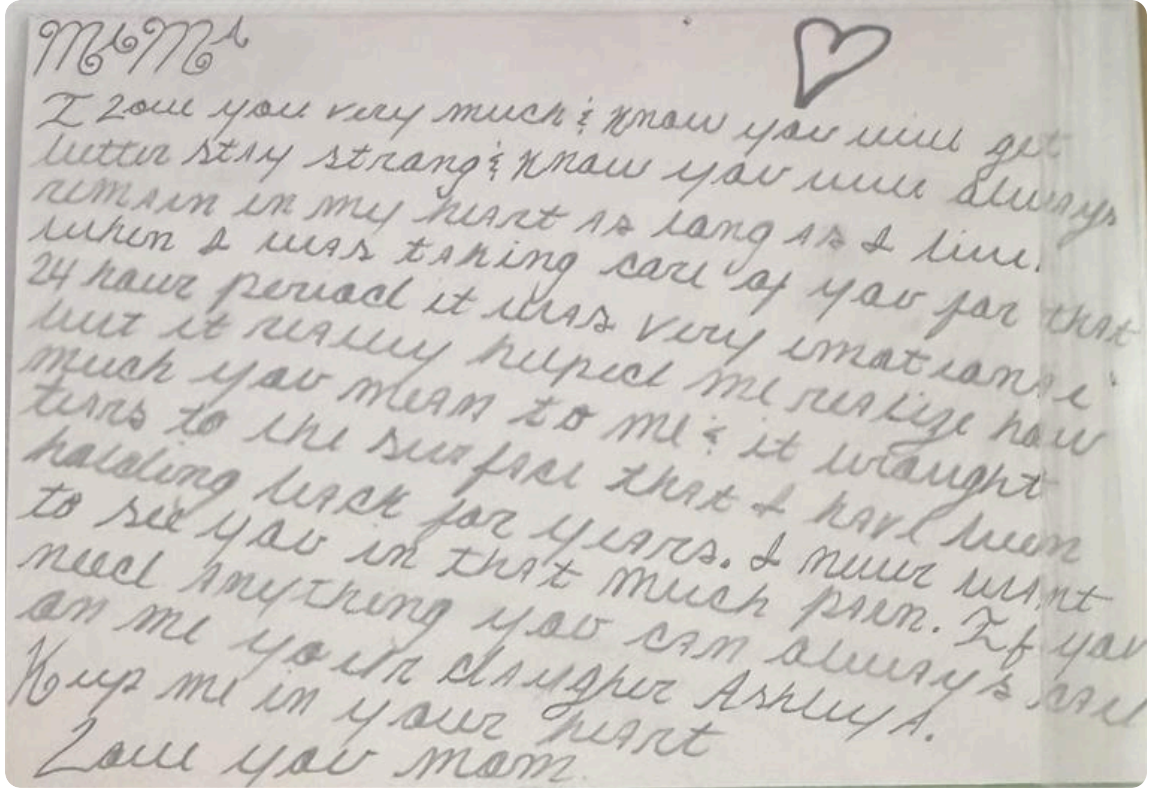 MaMa
I Love you very much & know you will get
better stay strong & know you will always
remain in my heart as long as I live.
When I was taking care of you for that
24 hour period it was very emotional
but it really helped me realize how
much you mean to me & it brought
tears to the surface that I have been
holding back for years. I never want
to see you in that much pain. If you
need anything you can always call
on me your daugher Ashley A.
Keep me in your heart
Love you mom